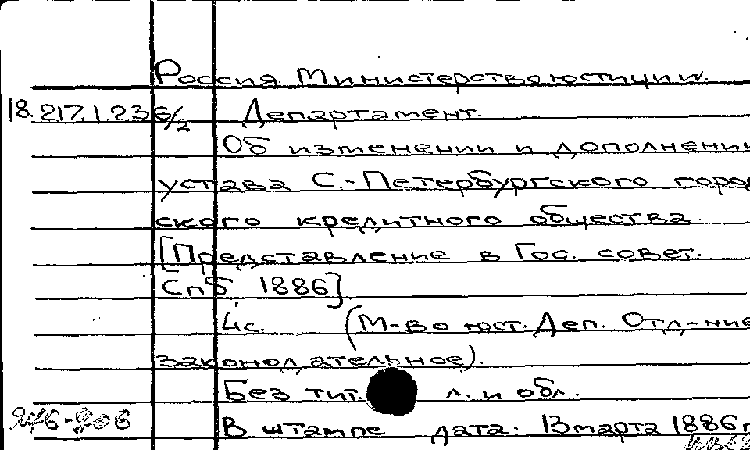 Россия Министерство юстиции.
18.217.1.236/2 Департамент.
Об изменении и дополнении
устава С.-Петербургского город
ского кредитного общества
[Представление в Гос. совет.
Спб, 1886].
4с. (М-во юст. Деп. Отд-ние
законодательное).
Без тит. л. и обл.
В штампе дата: 13 марта 1886 г